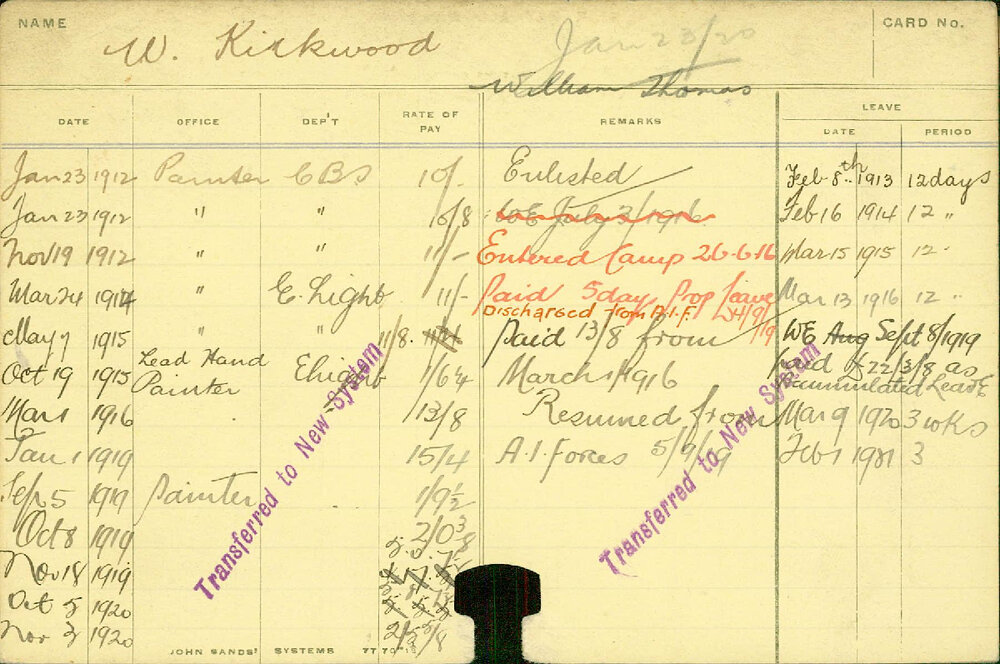 NAME W. Kirkwood Jan 23/20 CARD No.
William Thomas
DATE OFFICE DEP'T RATE OF PAY REMARKS LEAVE
DATE PERIOD
Jan 23 1912 Painter CBS 10/- Enlisted Feb 8th 1913 12 days
Jan 23 1912 " " 10/8 WE July 3/1916 Feb 16 1914 12 "
Nov 19 1912 " " 11/- Entered Camp 26-6-16 Mar 15 1915 12 "
Mar 24 1914 " E. Light 11/- Paid 5 day Prop Leave Mar 13 1916 12 "
Discharged from A.I.F. 4/9/19
May 7 1915 " " 11/8 Paid 13/8 from WE Aug Sept 8/1919
Oct 19 1915 Lead Hand Painter Elight 1/6¼ March 1/1916 paid £22/3/8 as
Accumulated Leave
Mar 1 1916 13/8 Resumed from Mar 9 1920 3 wks
Jan 1 1919 15/4 A.I Forces 5/9/19 Feb 1 1921 3
Sep 5 1919 Painter 1/9½
Oct 8 1919 2/0⅜
Nov 18 1919
Oct 5 1920
Nov 3 1920
Transferred to New System
Transferred to New System
JOHN SANDS' SYSTEMS